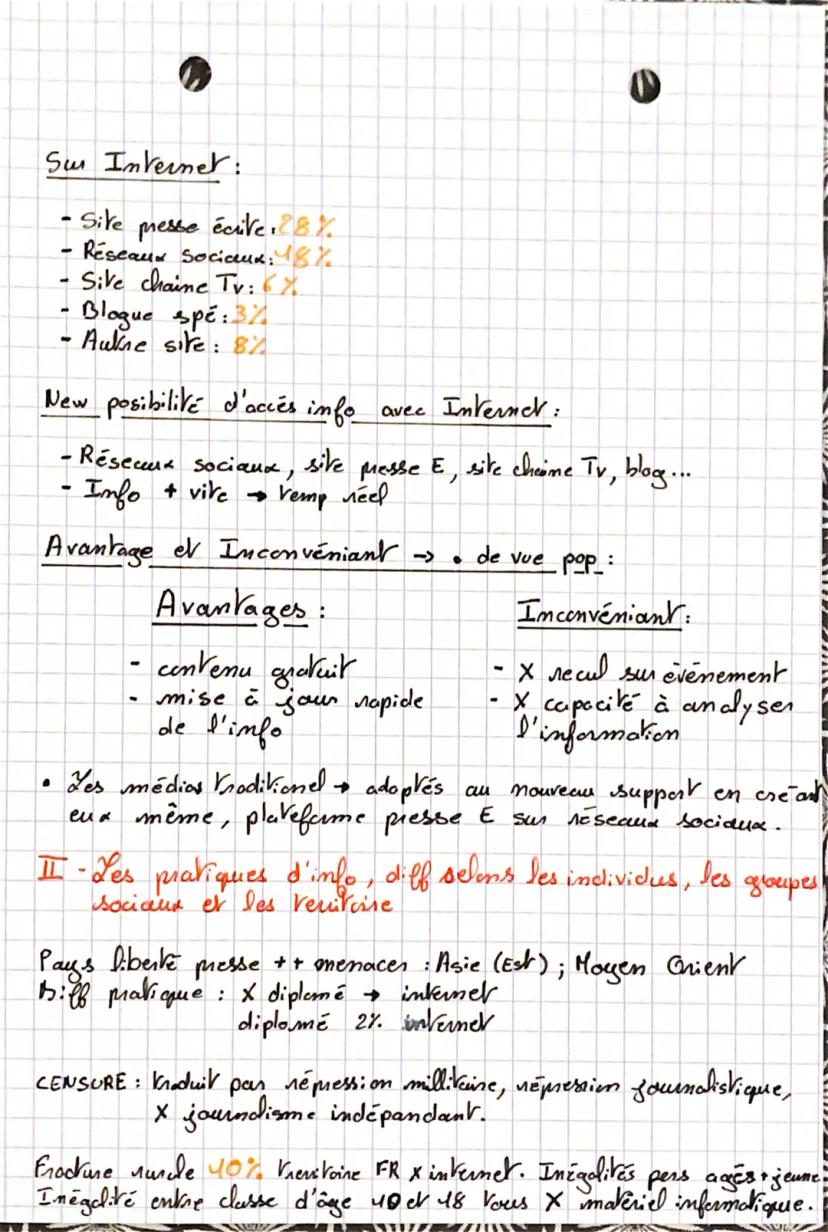 Sur Internet :
- Site presse écrite : 28%
- Réseaux sociaux : 18%
- Site chaine Tv : 6%
- Blogue spé : 3%
- Autre site : 8%
New posibilité d'accés info avec Internet :
- Réseaux sociaux, site presse E, site chaine Tv, blog...
- Info + vite → temp réel
Avantage et Inconvéniant → • de vue pop :
Avantages : Inconvéniant :
- contenu gratuit - X recul sur évènement
- mise à jour rapide - X capacité à analyser
de l'info l'information
• Les médias traditionel → adoptés au nouveau support en créant
eux même, plateforme presse E sur réseaux sociaux.
II - Les pratiques d'info, diff selons les individus, les groupes
sociaux et les territoire
Pays liberté presse ++ menacer : Asie (Est) ; Moyen Orient
Diff pratique : X diplomé → internet
diplomé 2% internet
CENSURE : traduit par répression millitaire, répression journalistique,
X journalisme indépandant.
Fracture rurale 10% territoire FR X internet. Inégalités pers agés + jeune.
Inégalité entre classe d'âge 10 et 18 tous X matériel informatique.